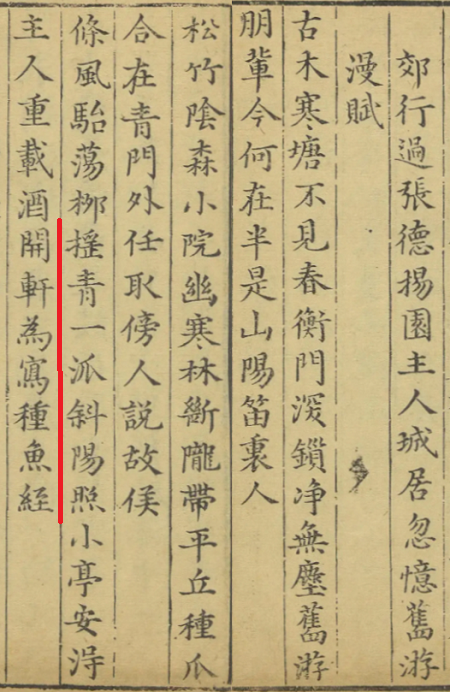 郊行過張德揚園主人城居忽憶舊游
漫賦
古木寒塘不見春衡門深鎖净無塵舊游
朋輩今何在半是山陽笛裏人
松竹陰森小院幽寒林斷隴帶平丘種瓜
合在青門外任取傍人説故侯
條風駘蕩柳揺青一派斜陽照小亭安淂
主人重載酒開軒為寫種魚經